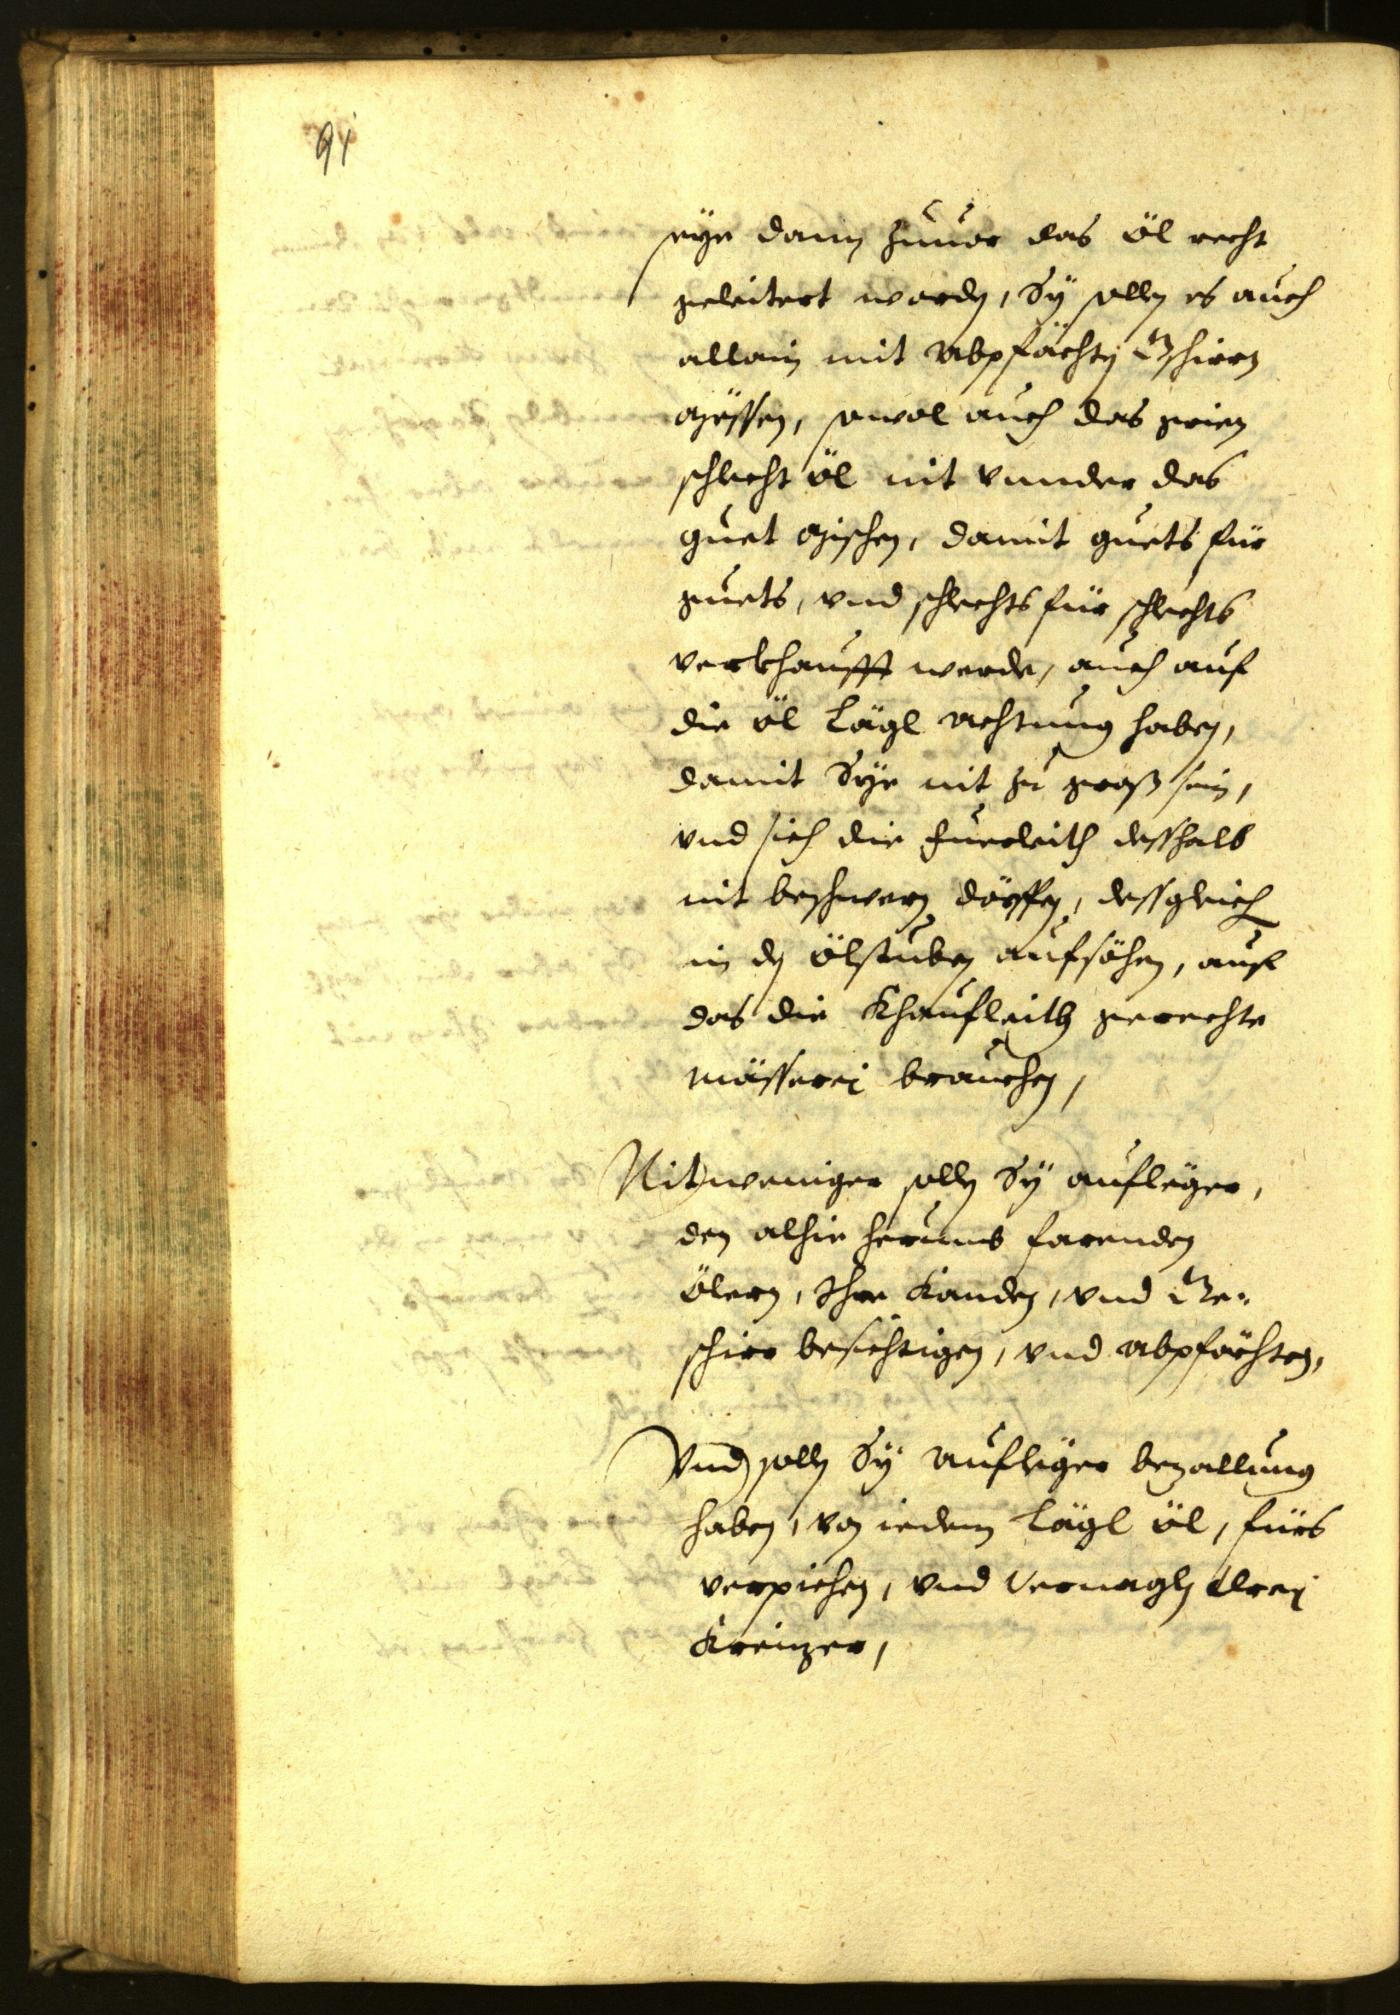 91
seye dann zuuor das öl recht
geleitert worden, Sÿ sollen es auch
allain mit abpfächtn Gschirrn
messen, sowol auch das grien
schlecht öl nit vnnder das
guet mischen, damit guets für
guets, vnd schlechts für schlechts
verkhaufft werde, auch auf
die öl Lägl achtung haben,
damit Sÿe nit zu groß sein,
vnd sich die Fuerleith desshalb
nit beschwern dörffen, dessgleich
in den ölstuben aufsöhen, auf
das die Khaufleith gerechte
mässerej brauchen,
Nit weniger sollen Sÿ aufleger,
den alhie herumb farenden
ölern, Ihre Kanden, vnd Ge„
schirr besichtigen, vnd abpfächten,
Vnd sollen Sÿ aufleger bezallung
haben, von iedem Lägl öl, fürs
verpichen, vnd vernaglen drej
Kreizer,